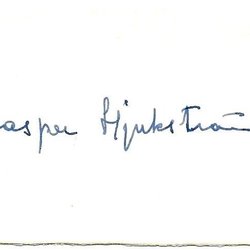 asper Hjukströ